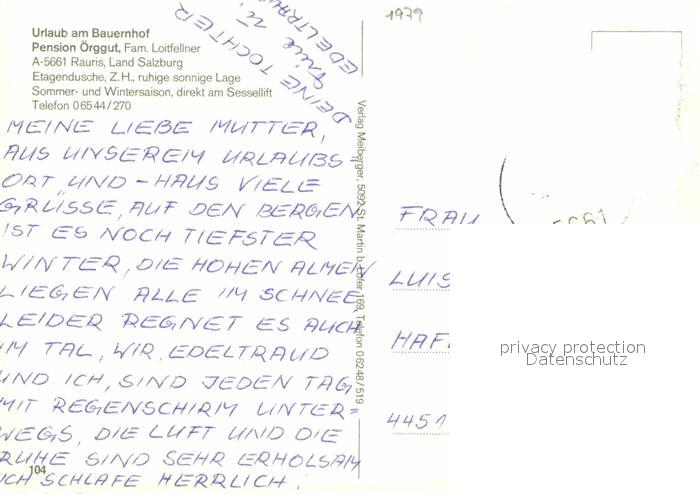 1979
Urlaub am Bauernhof
Pension Örggut, Fam. Loitfellner
A-5661 Rauris, Land Salzburg
Etagendusche, Z.H., ruhige sonnige Lage
Sommer- und Wintersaison, direkt am Sessellift
Telefon 06544/270
MEINE LIEBE MUTTER,
AUS UNSEREM URLAUBS=
ORT UND - HAUS VIELE
GRÜSSE, AUF DEN BERGEN
IST ES NOCH TIEFSTER
WINTER, DIE HOHEN ALMEN
LIEGEN ALLE IM SCHNEE,
LEIDER REGNET ES AUCH
IM TAL, WIR, EDELTRAUD
UND ICH, SIND JEDEN TAG
MIT REGENSCHIRM UNTER=
WEGS, DIE LUFT UND DIE
RUHE SIND SEHR ERHOLSAM
ICH SCHLAFE HERRLICH!
104
DEINE TOCHTER
EDELTRAU
Verlag Meiberger, 5092 St. Martin b. Lofer 169, Telefon 06248/519
FRAU
LUIS
HAF
4451
privacy protection
Datenschutz